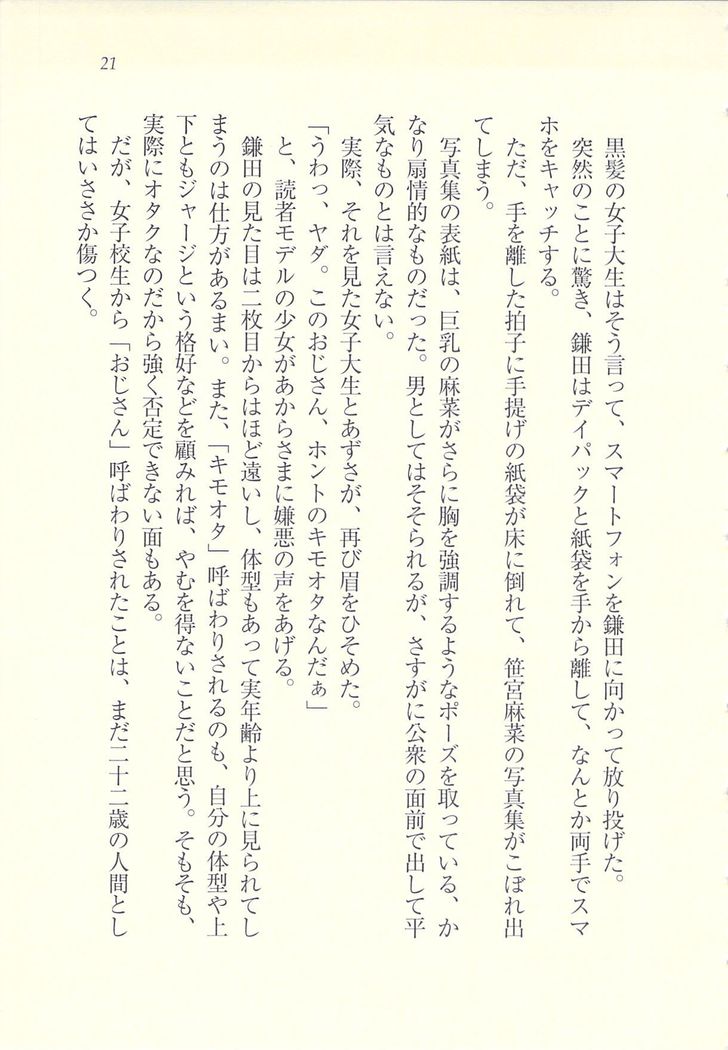 21
黒髪の女子大生はそう言って、スマートフォンを鎌田に向かって放り投げた。
突然のことに驚き、鎌田はデイパックと紙袋を手から離して、なんとか両手でスマ
ホをキャッチする。
ただ、手を離した拍子に手提げの紙袋が床に倒れて、笹宮麻菜の写真集がこぼれ出
てしまう。
写真集の表紙は、巨乳の麻菜がさらに胸を強調するようなポーズを取っている、か
なり扇情的なものだった。男としてはそそられるが、さすがに公衆の面前で出して平
気なものとは言えない。
実際、それを見た女子大生とあずさが、再び眉をひそめた。
「うわっ、ヤダ。このおじさん、ホントのキモオタなんだぁ」
と、読者モデルの少女があからさまに嫌悪の声をあげる。
鎌田の見た目は二枚目からはほど遠いし、体型もあって実年齢より上に見られてし
まうのは仕方があるまい。また、「キモオタ」呼ばわりされるのも、自分の体型や上
下ともジャージという格好などを顧みれば、やむを得ないことだと思う。そもそも、
実際にオタクなのだから強く否定できない面もある。
だが、女子校生から「おじさん」呼ばわりされたことは、まだ二十二歳の人間とし
てはいささか傷つく。